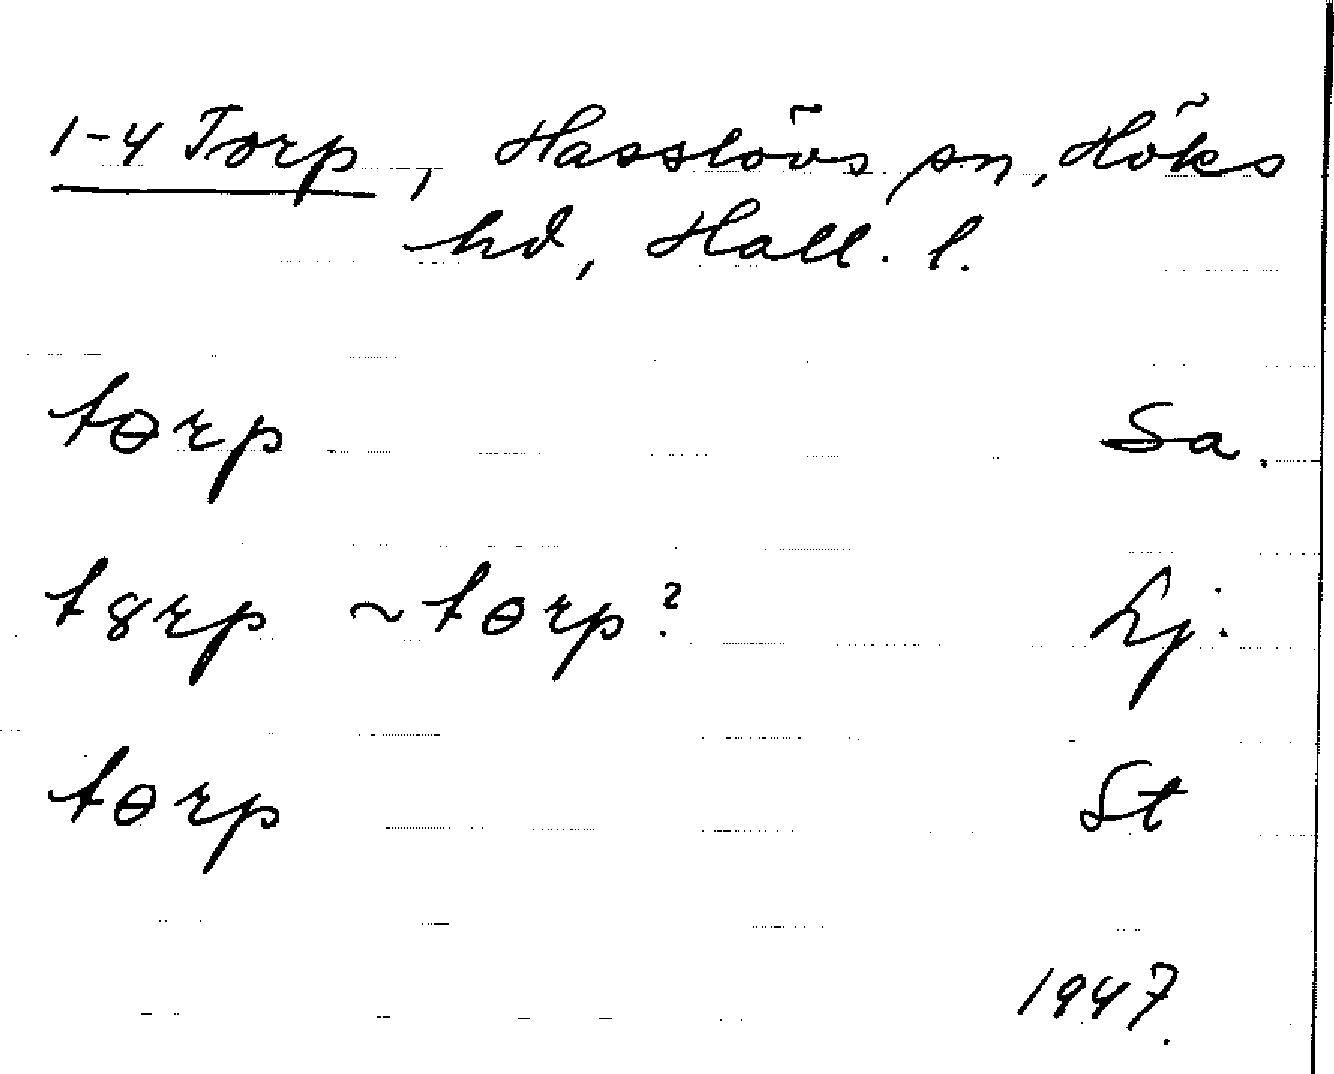 1-4 Torp, Hasslövs sn, Höks
hd, Hall. l.
tɵrp Sa.
t8rp ~ tɵrp? Lj.
tɵrp St
1947.